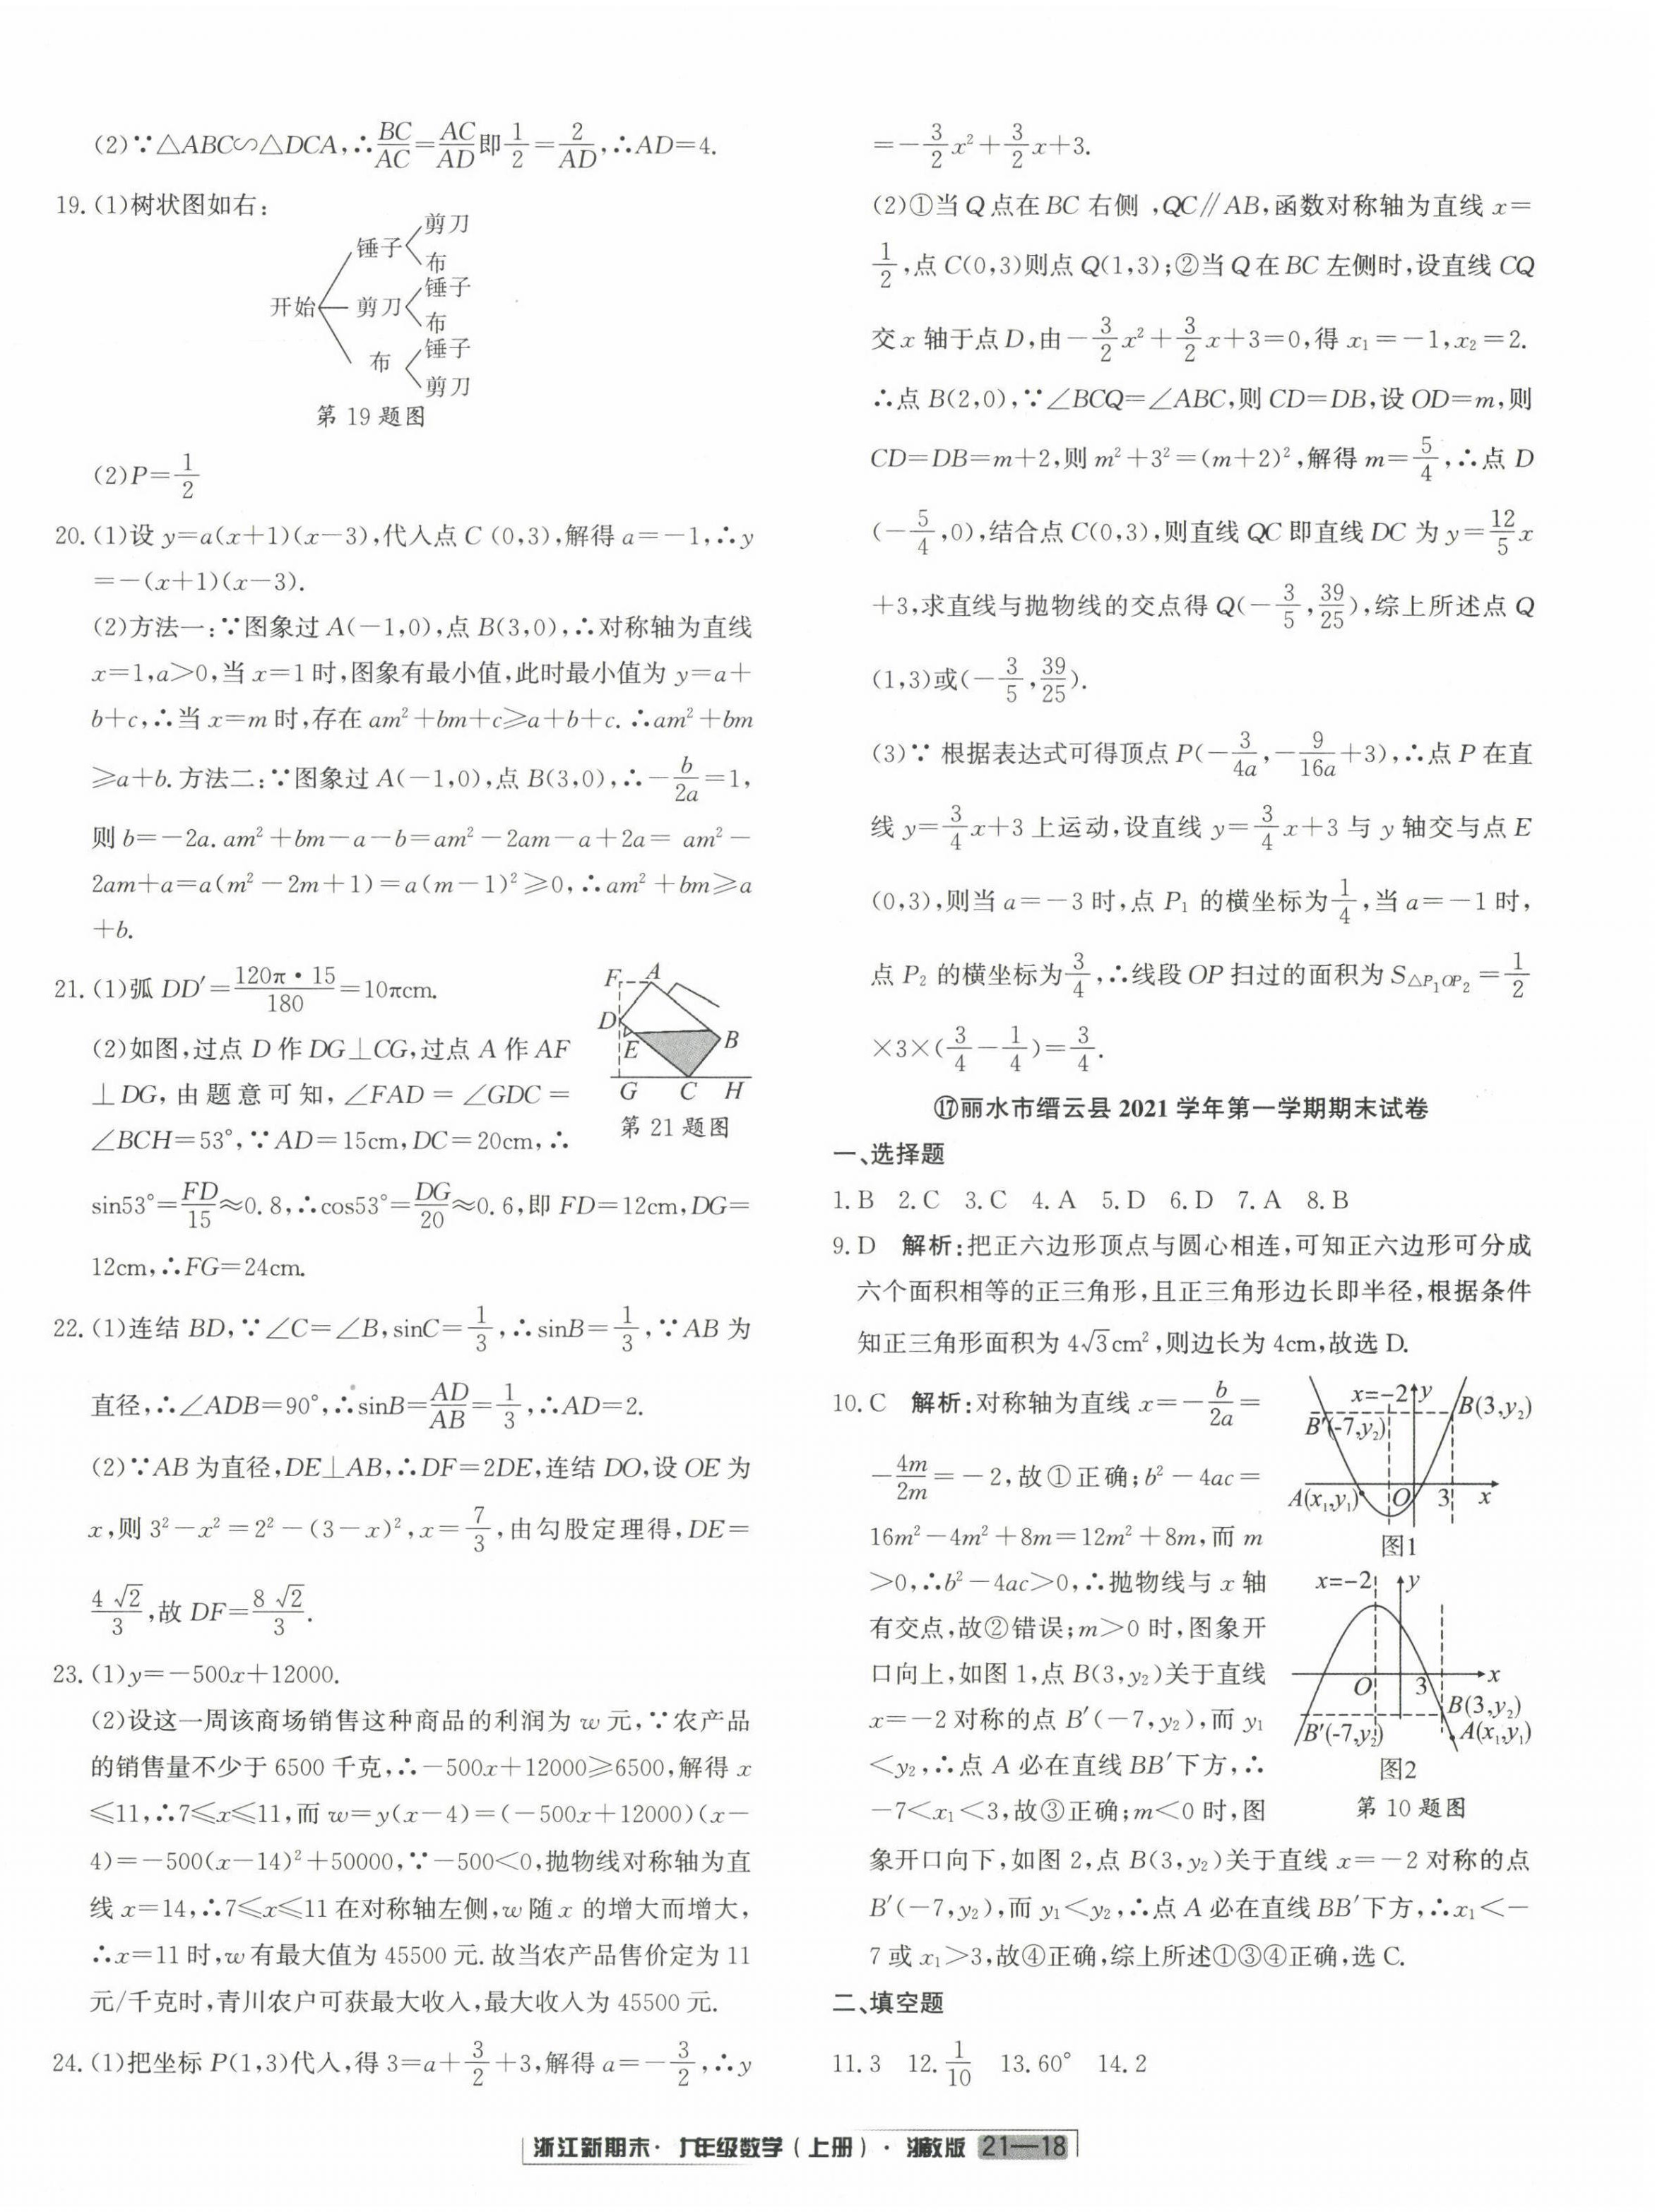 (2)∵△ABC∽△DCA,∴BC/AC=AC/AD即1/2=2/AD,∴AD=4.
19.(1)树状图如右:
开始
锤子
剪刀
布
剪刀
锤子
布
布
锤子
剪刀
第 19 题图
(2)P=1/2
20.(1)设 y=a(x+1)(x-3),代入点 C (0,3),解得 a=-1,∴y
=-(x+1)(x-3).
(2)方法一:∵图象过 A(-1,0),点 B(3,0),∴对称轴为直线
x=1,a>0,当 x=1 时,图象有最小值,此时最小值为 y=a+
b+c,∴当 x=m 时,存在 am²+bm+c≥a+b+c. ∴am²+bm
≥a+b. 方法二:∵图象过 A(-1,0),点 B(3,0),∴-b/2a=1,
则 b=-2a. am²+bm-a-b=am²-2am-a+2a= am²-
2am+a=a(m²-2m+1)=a(m-1)²≥0,∴am²+bm≥a
+b.
21.(1)弧 DD′=120π·15/180=10πcm.
(2)如图,过点 D 作 DG⊥CG,过点 A 作 AF
⊥DG,由题意可知,∠FAD=∠GDC=
∠BCH=53°,∵AD=15cm,DC=20cm,∴
F A
D
E
B
G C H
第 21 题图
sin53°=FD/15≈0.8,∴cos53°=DG/20≈0.6,即 FD=12cm,DG=
12cm,∴FG=24cm.
22.(1)连结 BD,∵∠C=∠B,sinC=1/3,∴sinB=1/3,∵AB 为
直径,∴∠ADB=90°,∴sinB=AD/AB=1/3,∴AD=2.
(2)∵AB 为直径,DE⊥AB,∴DF=2DE,连结 DO,设 OE 为
x,则 3²-x²=2²-(3-x)²,x=7/3,由勾股定理得,DE=
4√2/3,故 DF=8√2/3.
23.(1)y=-500x+12000.
(2)设这一周该商场销售这种商品的利润为 w 元,∵农产品
的销售量不少于 6500 千克,∴-500x+12000≥6500,解得 x
≤11,∴7≤x≤11,而 w=y(x-4)=(-500x+12000)(x-
4)=-500(x-14)²+50000,∵-500<0,抛物线对称轴为直
线 x=14,∴7≤x≤11 在对称轴左侧,w 随 x 的增大而增大,
∴x=11 时,w 有最大值为 45500 元. 故当农产品售价定为 11
元/千克时,青川农户可获最大收入,最大收入为 45500 元.
24.(1)把坐标 P(1,3)代入,得 3=a+3/2+3,解得 a=-3/2,∴y
=-3/2x²+3/2x+3.
(2)①当 Q 点在 BC 右侧 ,QC∥AB,函数对称轴为直线 x=
1/2,点 C(0,3)则点 Q(1,3);②当 Q 在 BC 左侧时,设直线 CQ
交 x 轴于点 D,由-3/2x²+3/2x+3=0,得 x₁=-1,x₂=2.
∴点 B(2,0),∵∠BCQ=∠ABC,则 CD=DB,设 OD=m,则
CD=DB=m+2,则 m²+3²=(m+2)²,解得 m=5/4,∴点 D
(-5/4,0),结合点 C(0,3),则直线 QC 即直线 DC 为 y=12/5x
+3,求直线与抛物线的交点得 Q(-3/5,39/25),综上所述点 Q
(1,3)或(-3/5,39/25).
(3)∵ 根据表达式可得顶点 P(-3/4a,-9/16a+3),∴点 P 在直
线 y=3/4x+3 上运动,设直线 y=3/4x+3 与 y 轴交与点 E
(0,3),则当 a=-3 时,点 P₁ 的横坐标为1/4,当 a=-1 时,
点 P₂ 的横坐标为3/4,∴线段 OP 扫过的面积为 S△P₁OP₂=1/2
×3×(3/4-1/4)=3/4.
⑰丽水市缙云县 2021 学年第一学期期末试卷
一、选择题
1.B 2.C 3.C 4.A 5.D 6.D 7.A 8.B
9.D 解析:把正六边形顶点与圆心相连,可知正六边形可分成
六个面积相等的正三角形,且正三角形边长即半径,根据条件
知正三角形面积为 4√3cm²,则边长为 4cm,故选 D.
10.C 解析:对称轴为直线 x=-b/2a=
-4m/2m=-2,故①正确;b²-4ac=
16m²-4m²+8m=12m²+8m,而 m
>0,∴b²-4ac>0,∴抛物线与 x 轴
有交点,故②错误;m>0 时,图象开
口向上,如图 1,点 B(3,y₂)关于直线
x=-2 对称的点 B′(-7,y₂),而 y₁
<y₂,∴点 A 必在直线 BB′下方,∴
-7<x₁<3,故③正确;m<0 时,图
x=-2 y
B(3,y₂)
B′(-7,y₂)
A(x₁,y₁) O 3 x
图1
x=-2 y
x
O 3
B(3,y₂)
B′(-7,y₂) A(x₁,y₁)
图2
第 10 题图
象开口向下,如图 2,点 B(3,y₂)关于直线 x=-2 对称的点
B′(-7,y₂),而 y₁<y₂,∴点 A 必在直线 BB′下方,∴x₁<-
7 或 x₁>3,故④正确,综上所述①③④正确,选 C.
二、填空题
11.3 12.1/10 13.60° 14.2
浙江新期末·九年级数学(上册)·浙教版 21—18